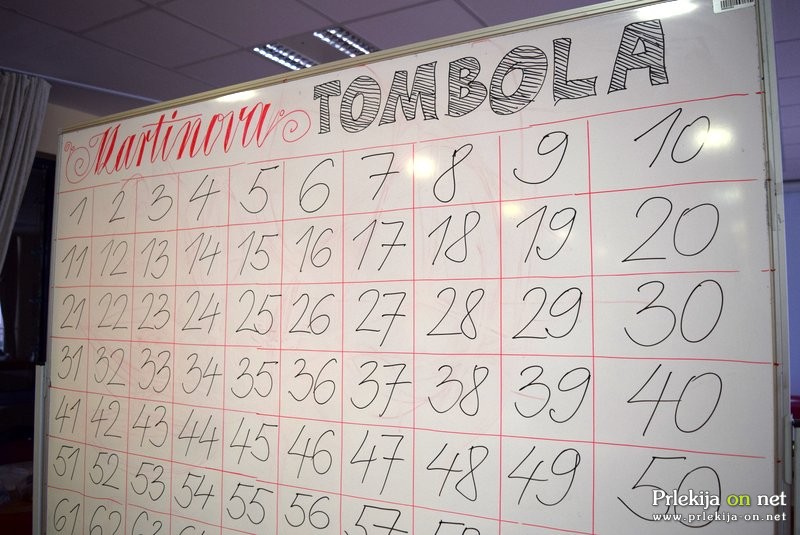 Martinova TOMBOLA
1 2 3 4 5 6 7 8 9 10
11 12 13 14 15 16 17 18 19 20
21 22 23 24 25 26 27 28 29 30
31 32 33 34 35 36 37 38 39 40
41 42 43 44 45 46 47 48 49 50
51 52 53 54 55 56 57
61 62 63
Prlekija on net
www.prlekija-on.net